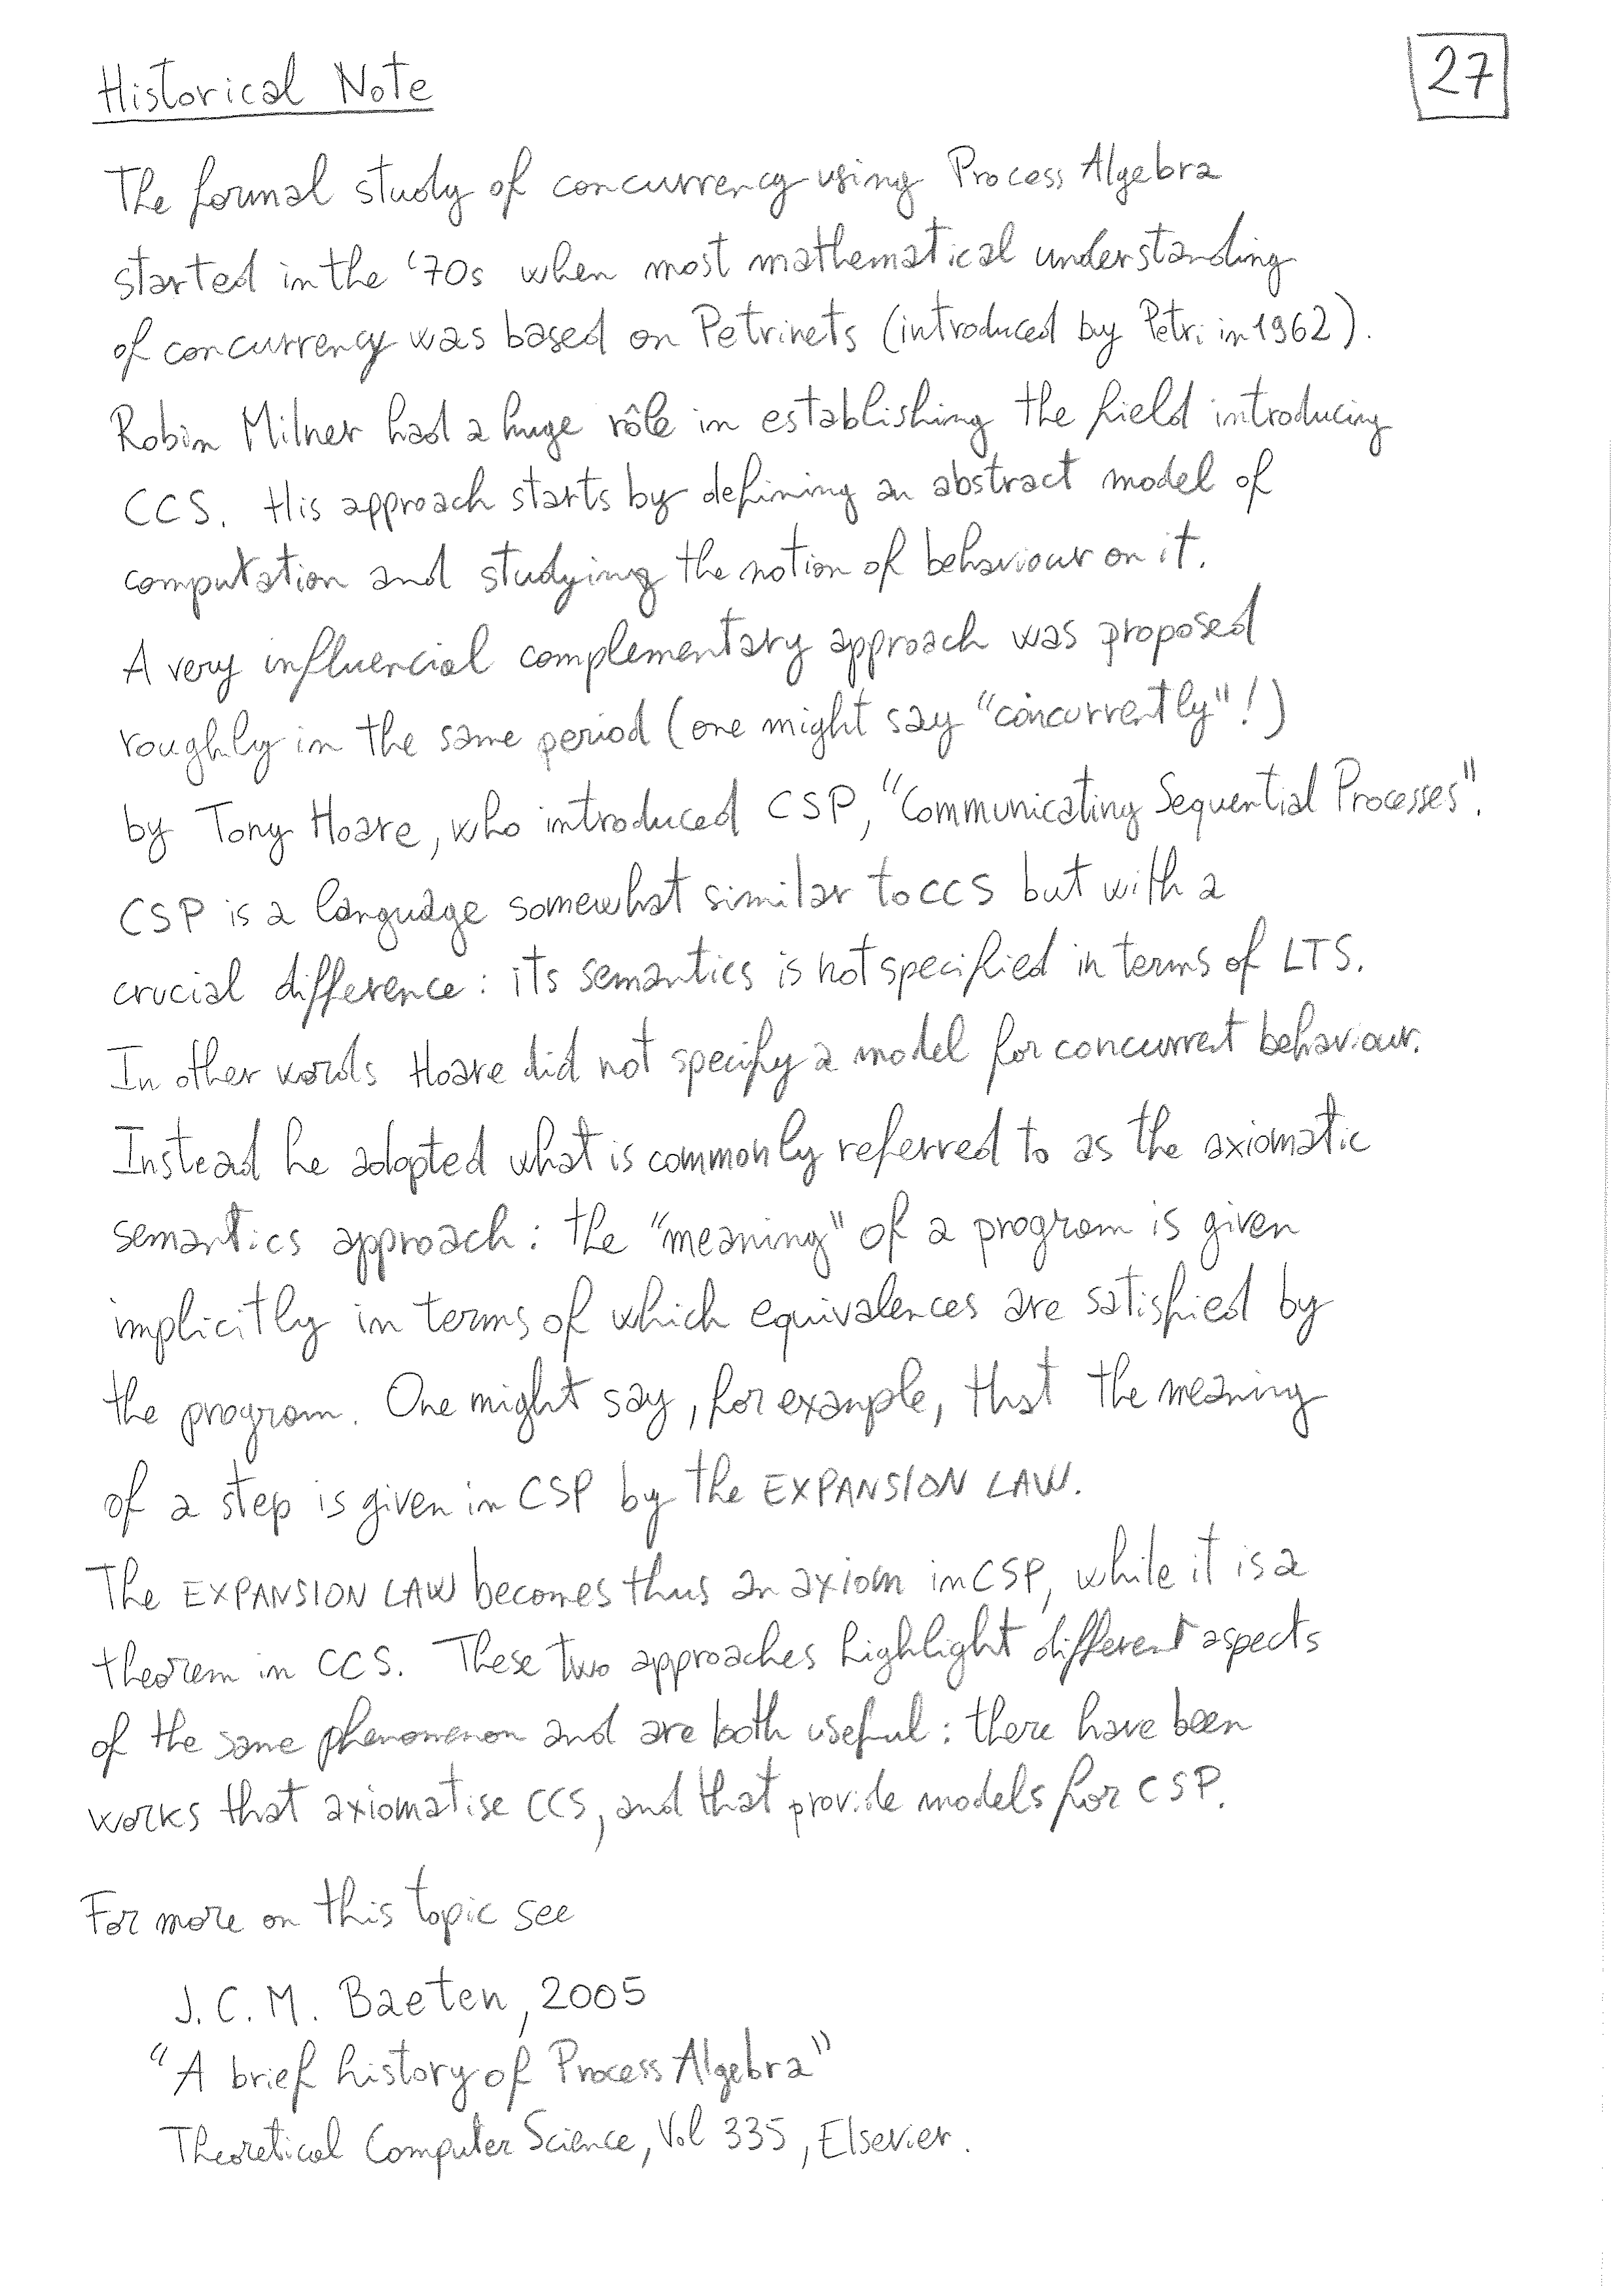 Historical Note
27
The formal study of concurrency using Process Algebra
started in the '70s when most mathematical understanding
of concurrency was based on Petrinets (introduced by Petri in 1962).
Robin Milner had a huge rôle in establishing the field introducing
CCS. His approach starts by defining an abstract model of
computation and studying the notion of behaviour on it.
A very influencial complementary approach was proposed
roughly in the same period (one might say "concurrently"!)
by Tony Hoare, who introduced CSP, "Communicating Sequential Processes".
CSP is a language somewhat similar to CCS but with a
crucial difference: its semantics is not specified in terms of LTS.
In other words Hoare did not specify a model for concurrent behaviour.
Instead he adopted what is commonly referred to as the axiomatic
semantics approach: the "meaning" of a program is given
implicitly in terms of which equivalences are satisfied by
the program. One might say, for example, that the meaning
of a step is given in CSP by the EXPANSION LAW.
The EXPANSION LAW becomes thus an axiom in CSP, while it is a
theorem in CCS. These two approaches highlight different aspects
of the same phenomenon and are both useful: there have been
works that axiomatise CCS, and that provide models for CSP.
For more on this topic see
J.C.M. Baeten, 2005
"A brief history of Process Algebra"
Theoretical Computer Science, Vol 335, Elsevier.